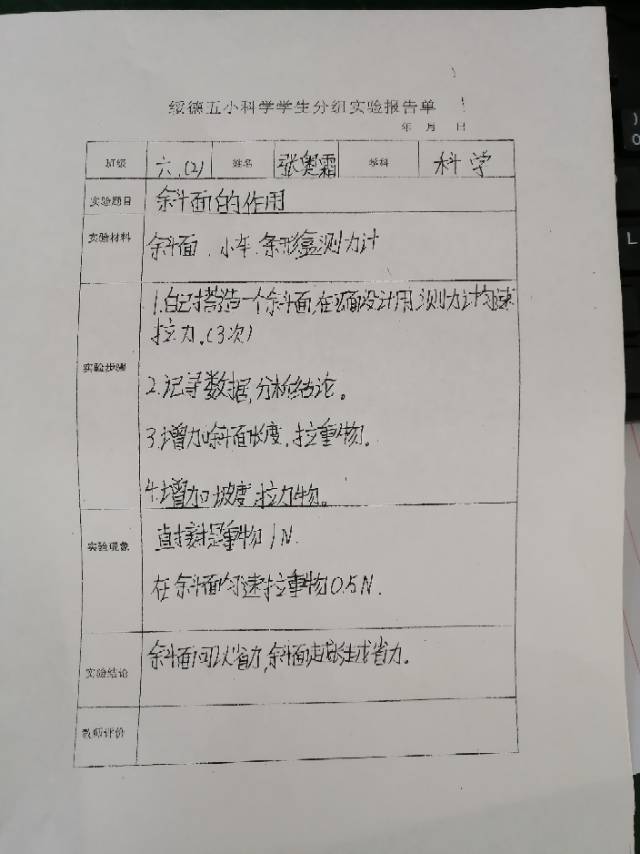 绥德五小科学学生分组实验报告单
年 月 日
班级 六.(2) 姓名 张奥霜 学科 科学
实验题目 斜面的作用
实验材料 斜面、小车、条形盒测力计
实验步骤
1.自己搭造一个斜面,在面设计用测力计匀速
拉力.(3次)
2.记录数据,分析结论。
3.增加斜面长度,拉重物。
4.增加坡度,拉力物。
实验现象 直接提重物1N.
在斜面匀速拉重物0.5N.
实验结论 斜面可以省力,斜面越省力.
教师评价